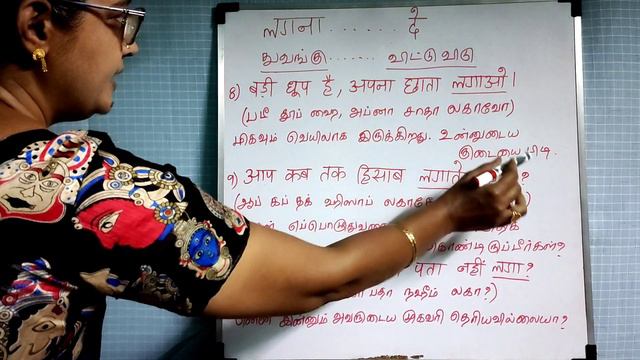 लगना ...... १/६
துவங்கு ...... விட்டுவிடு
8) बड़ी धूप है, अपना छाता लगाओ।
(படீ தூப் ஹை, அப்னா சாதா லகாவோ)
மிகவும் வெயிலாக இருக்கிறது. உன்னுடைய
குடையை பிடி.
9) आप कब तक हिसाब लगाते ?
(ஆப் கப் தக் ஹிஸாப்
எப்பொழுது
கொண்டிருப்பீர்கள்?
पता नहीं लगा?
பதா நஹீம் லகா?)
இன்னும் அவருடைய முகவரி தெரியவில்லையா?